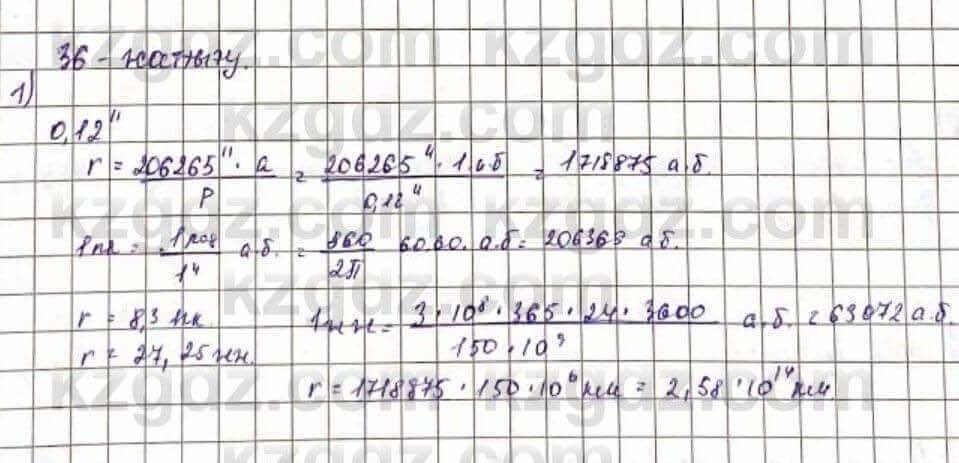 36 - жаттығу.
1)
0,12"
r = 206265" · a / P = 206265" · 1 а.б / 0,12" = 1718875 а.б.
1пк = 1рад / 1" а.б. = 360 / 2π 60.60. а.б = 206365 а.б.
r = 8,3 пк. 1жж = 3·10⁸·365·24·3600 / 150·10⁹ а.б. = 63072 а.б.
r = 27,25 жж.
r = 1718875 · 150 · 10⁶ км = 2,58 · 10¹⁴ км
kzgdz.com